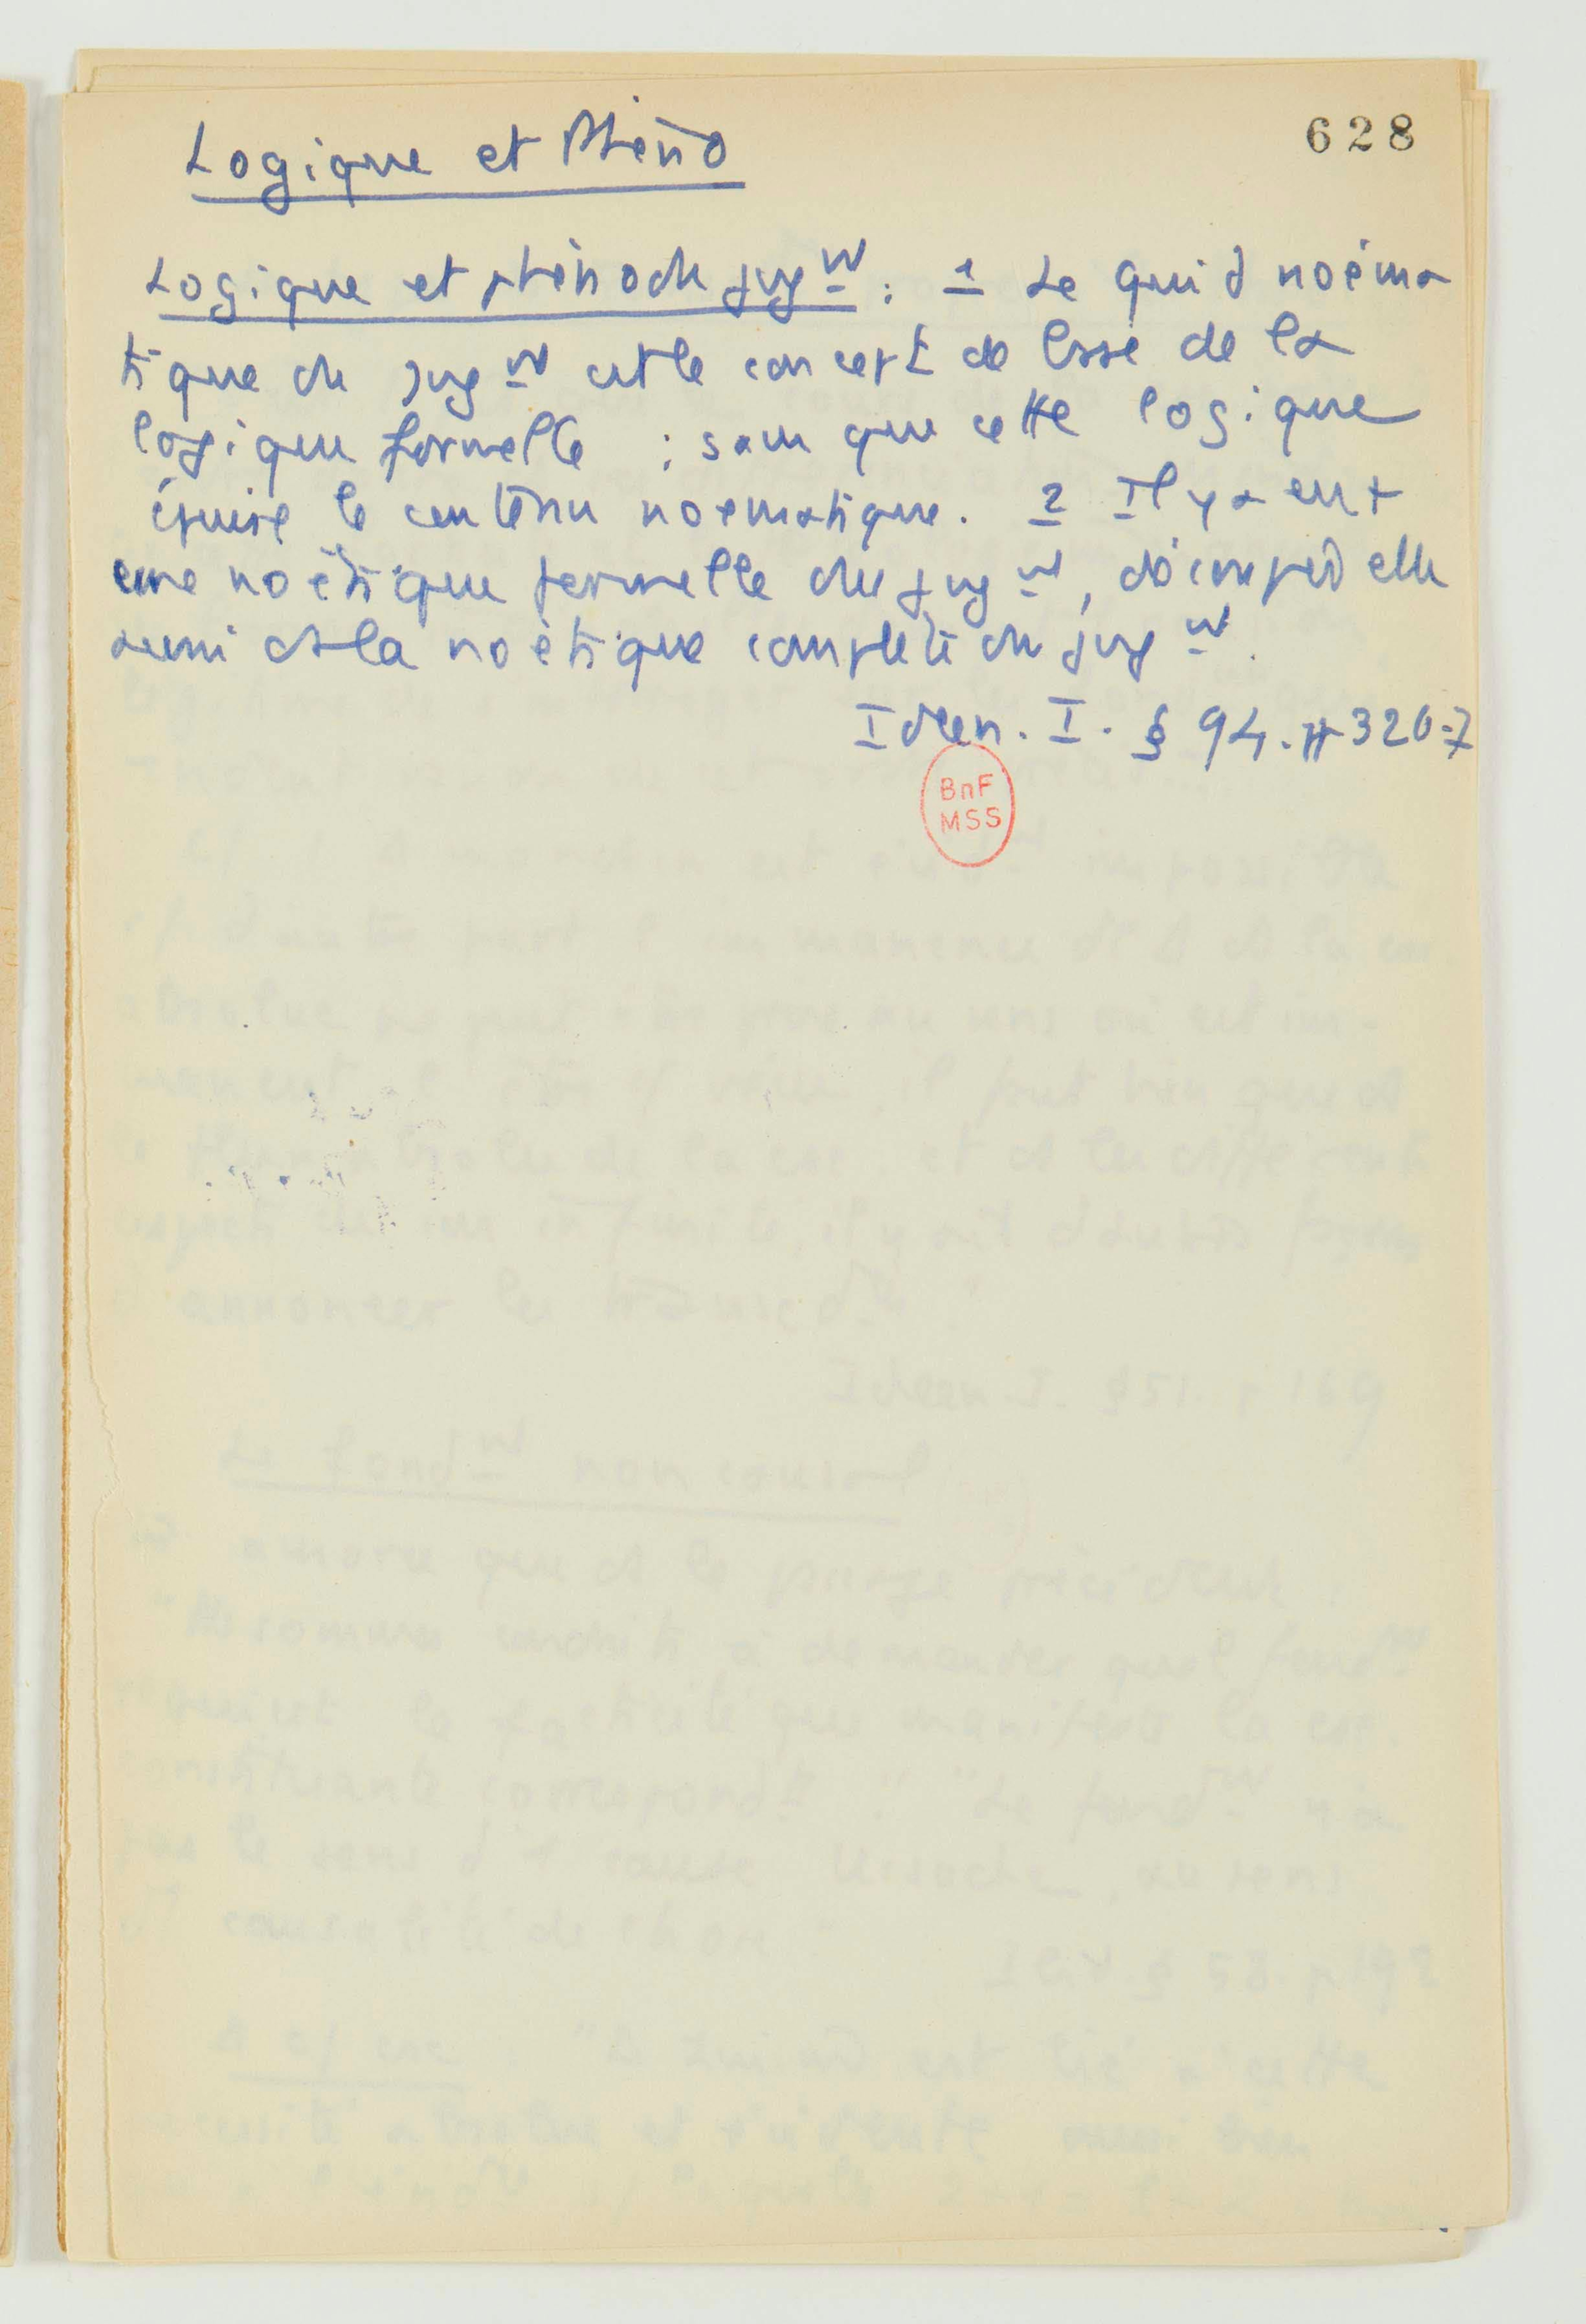 628
Logique et Phéno
Logique et phéno du jugmt : 1 Le quid noéma
tique du jugmt est le concept de base de la
logique formelle ; sans que cette logique
épuise le contenu noematique. 2 Il y a
une noétique formelle du jugmt, découped elle
aussi ds la noétique complète du jugmt.
Ideen. I. § 94. pp 326-7
BnF
MSS